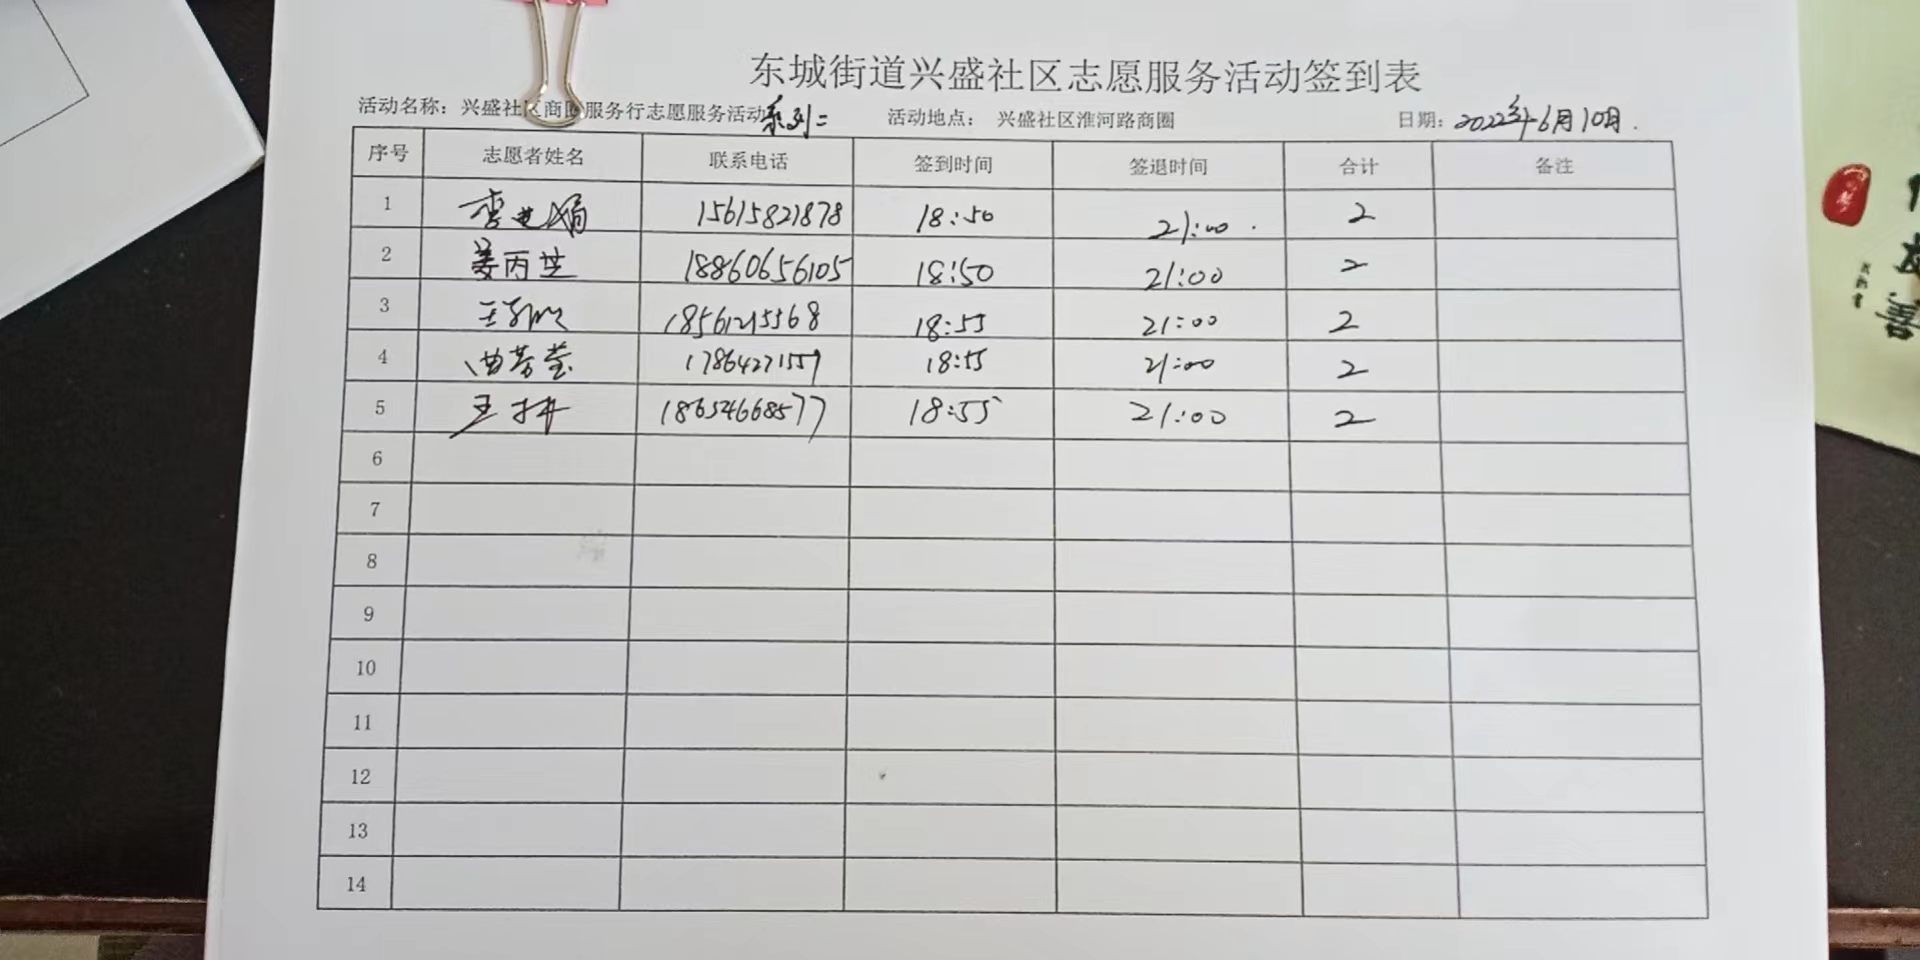 东城街道兴盛社区志愿服务活动签到表
活动名称：兴盛社区商圈服务行志愿服务活动系列二 活动地点：兴盛社区淮河路商圈 日期：2022年6月10日.
序号 志愿者姓名 联系电话 签到时间 签退时间 合计 备注
1 15615821878 18:50 21:00 2
2 姜丙芝 18860656105 18:50 21:00 2
3 18561215568 18:55 21:00 2
4 曲芳莹 17864271559 18:55 21:00 2
5 18654668577 18:55 21:00 2
6
7
8
9
10
11
12
13
14
善